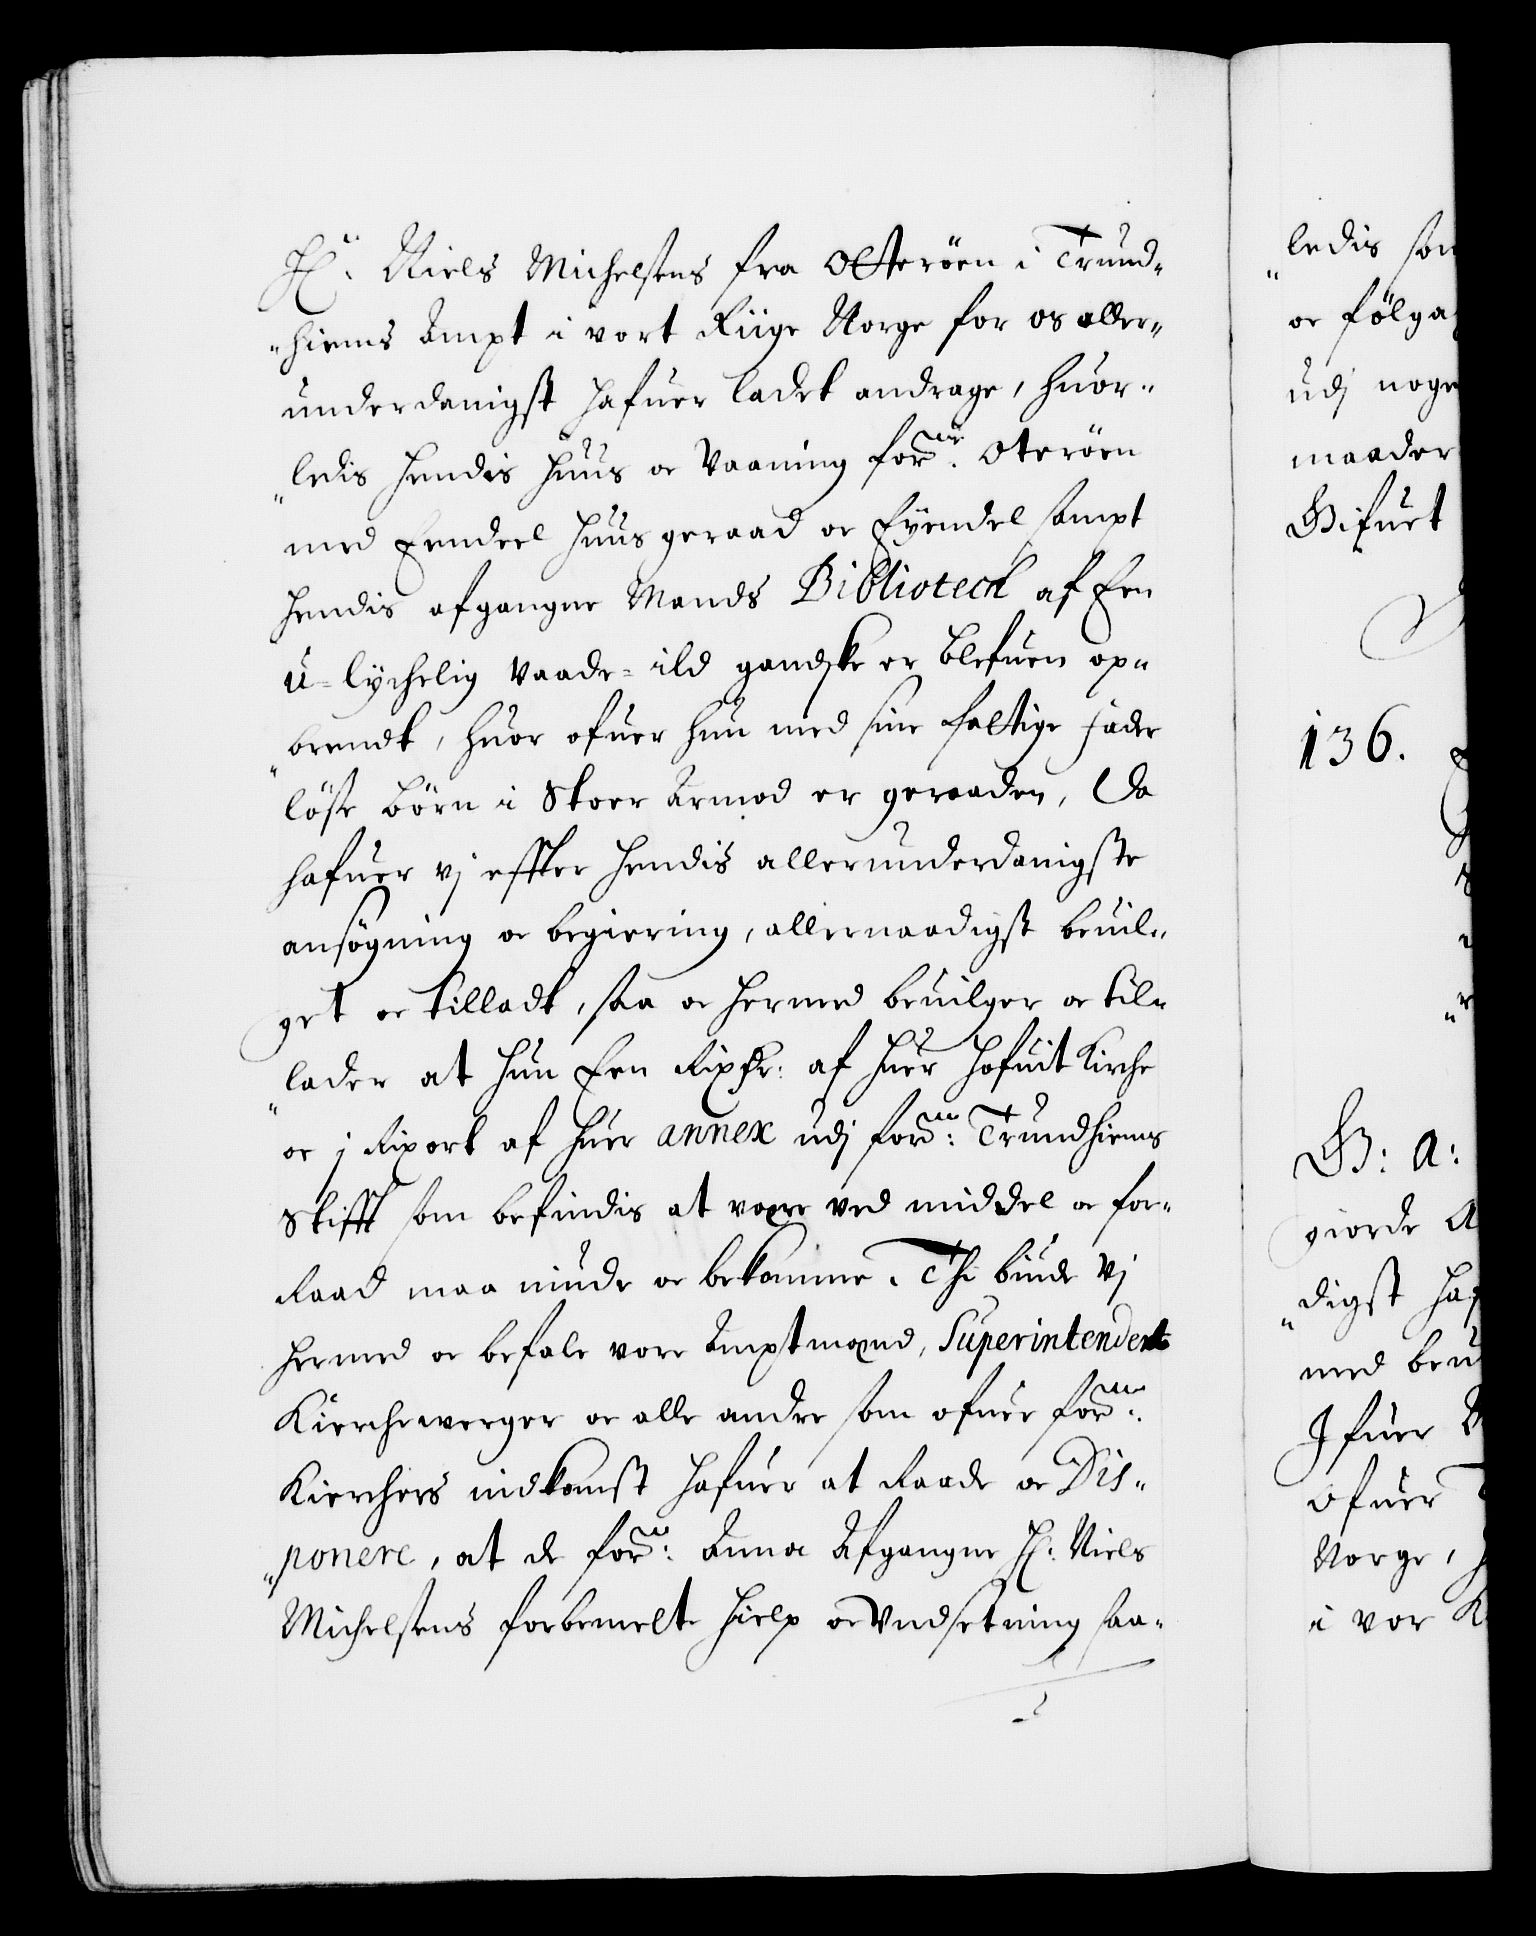 H<sup>r</sup>: Niels Michelsens fra Otteröen i Trund-
hiems Ampt i vort Riige Norge for os aller-
underdanigst hafuer ladet andrage, huor-
ledis hendis huus oc Vaaning for<sup>ne</sup>: Oteröen
med Eendeel huusgeraad oc Eÿendel sampt
hendis afgangne Mands Bibliotech af Een
u-lychelig Vaade-ild gandske er blefuen op-
brendt, huor ofuer hun med sine fattige fader
löse börn i Stoer Armod er geraaden, Da
hafuer vj effter hendis allerunderdanigste
ansögning oc begiering, allernaadigst beuil-
get oc tilladt, saa oc hermed beuilger oc til-
lader at hun Een Rixdr: af huer Hofuit Kirche
oc j Rixort af huer annex udj for<sup>ne</sup>: Trundhiems
Stifft som befindis at være ved middel oc for-
Raad maa niude oc bekomme. Thi biude Vj
hermed oc befale vore Amptmænd, Superintendent
Kierchewerger oc alle andre som ofuer for<sup>ne</sup>:
Kierchers indkomst hafuer at Raade oc Dis-
ponere, at de for<sup>ne</sup>: Anna Afgangne H<sup>r</sup>: Niels
Michelsens forbemelte hielp oc Undsetning saa-
ledis som
oc fölga
udj noge
maader
Gifuet
136.
G: A:
giorde A
digst haf
med beu
Ifuer
Ofuer
Norge,
i vor K